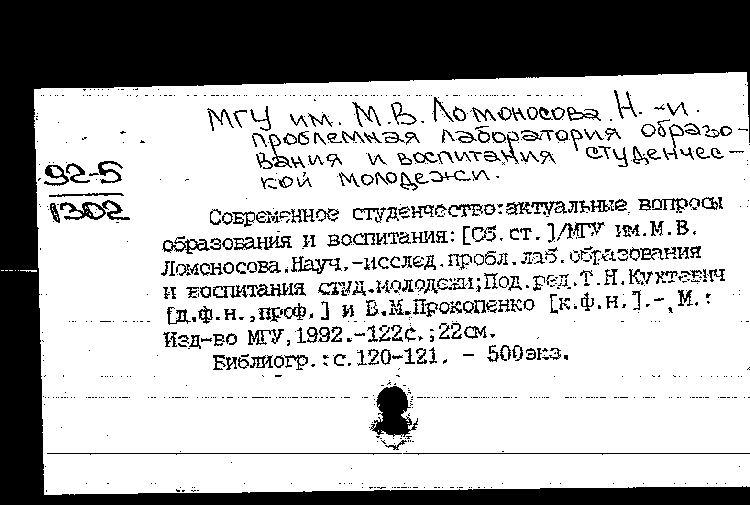 МГУ им. М.В. Ломоносова. Н.-и.
проблемная лаборатория образо-
вания и воспитания студенчес-
кой молодежи.
92-5
1302
Современное студенчество:актуальные вопросы
образования и воспитания:[Сб.ст.]/МГУ им.М.В.
Ломоносова.Науч.-исслед.пробл.лаб.образования
и воспитания студ.молодежи;Под.ред.Т.Н.Кухтевич
[д.ф.н.,проф.] и В.М.Прокопенко [к.ф.н.].-М.:
Изд-во МГУ,1992.-122с.;22см.
Библиогр.:с.120-121. - 500экз.